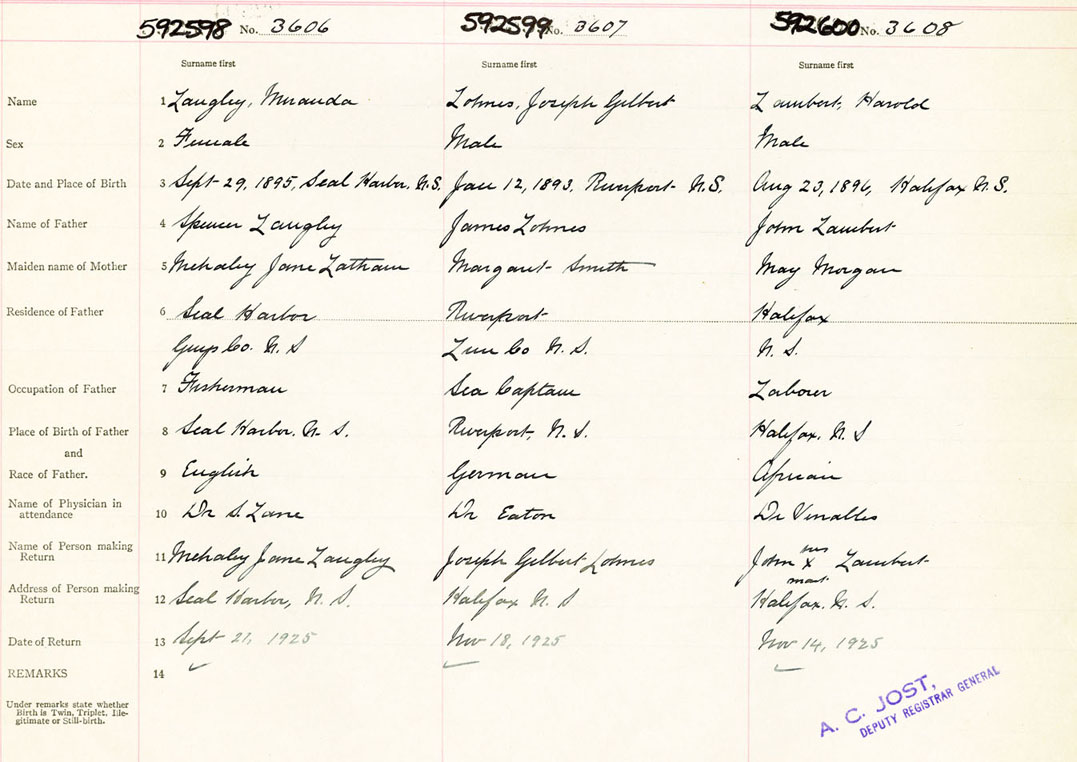 592598 No. 3606 592599 No. 3607 592600 No. 3608
Surname first Surname first Surname first
Name 1 Langley, Miranda Lohnes, Joseph Gilbert Lambert, Harold
Sex 2 Female Male Male
Date and Place of Birth 3 Sept 29, 1895, Seal Harbor, N.S. Jan 12, 1893, Riverport N.S. Aug 23, 1896, Halifax N.S.
Name of Father 4 Spencer Langley James Lohnes John Lambert
Maiden name of Mother 5 Mehaley Jane Latham Margaret Smith May Morgan
Residence of Father 6 Seal Harbor Riverport Halifax
Guys Co. N. S Lun Co N. S. N. S.
Occupation of Father 7 Fisherman Sea Captain Labourer
Place of Birth of Father 8 Seal Harbor, N. S. Riverport, N. S. Halifax, N. S
and
Race of Father. 9 English German African
Name of Physician in
attendance 10 Dr S. Lane Dr Eaton Dr
Name of Person making
Return 11 Mehaley Jane Langley Joseph Gilbert Lohnes John his X mark Lambert
Address of Person making
Return 12 Seal Harbor, N. S. Halifax N. S Halifax, N. S.
Date of Return 13 Sept 21, 1925 Nov 18, 1925 Nov 14, 1925
REMARKS 14
Under remarks state whether
Birth is Twin, Triplet, Ille-
gitimate or Still-birth.
A. C. JOST,
DEPUTY REGISTRAR GENERAL